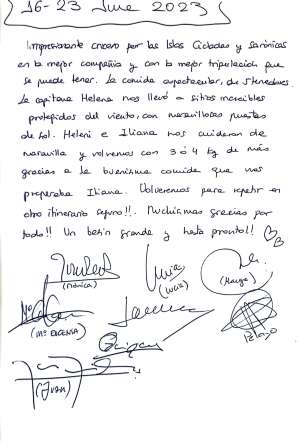 16-23 June 2023
Impresionante crucero por las Islas Cícladas y Sarónicas
en la mejor compañía y con la mejor tripulación que
se puede tener. La comida espectacular, de 5 tenedores.
La capitana Helena nos llevó a sitios increíbles
protegidos del viento, con maravillosas puestas
de sol. Heleni e Iliana nos cuidaron de
maravilla y volvemos con 3 ó 4 kg de más
gracias a la buenísima comida que nos
preparaba Iliana. Volveremos para repetir en
otro itinerario seguro!!. Muchísimas gracias por
todo!! Un besín grande y hasta pronto!!
(Mónica)
(Lucía)
(Marga)
(Mª EUGENIA)
Pelayo
(Juan)